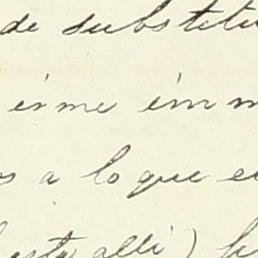 de substitu
irme inm
s a lo que e
esta allí)